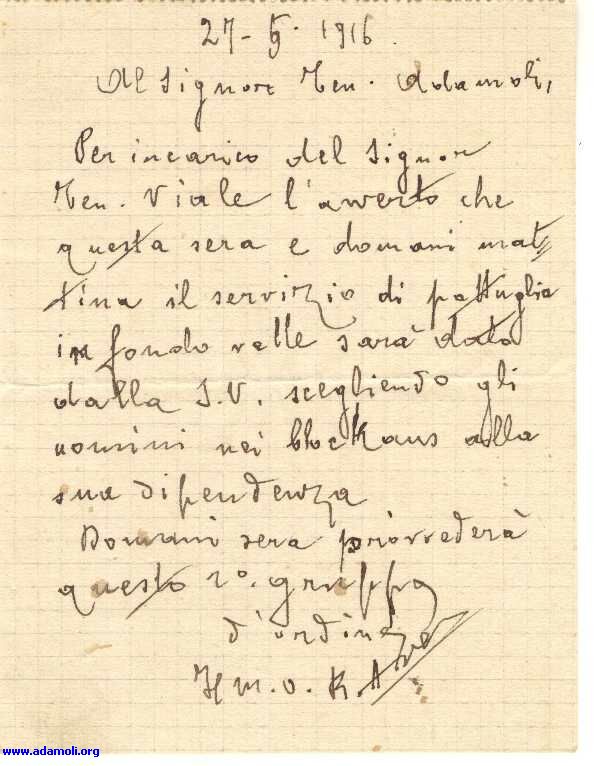 27-9-1916.
Al Signore Ten. Adamoli,
Per incarico del Signor
Ten. Viale l'averto che
questa sera e domani mat-
tina il servizio di pattuglia
in fondo valle sarà dato
dalla S.V. scegliendo gli
uomini nei blockaus alla
sua dipendenza
Domani sera provvederà
questo 2º. gruppo
d'ordine
Il m. o.
www.adamoli.org